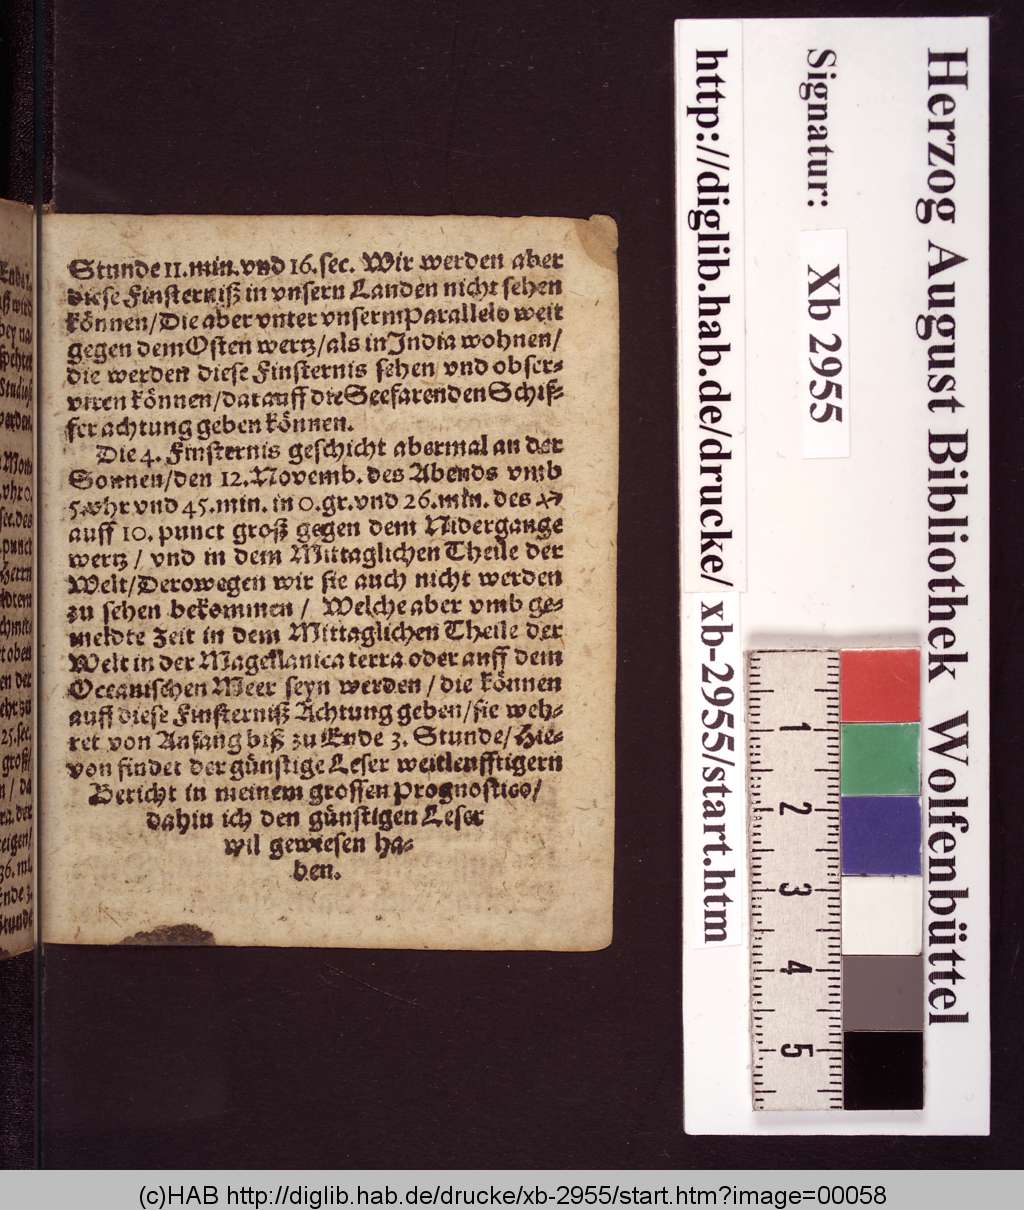 Stunde 11. min. vnd 16. sec. Wir werden aber
diese Finsterniß in vnsern Landen nicht sehen
können / Die aber vnter vnserm Parallelo weit
gegen dem Osten wertz / als in India wohnen /
die werden diese Finsternis sehen vnd obser-
viren können / darauff die Seefarenden Schif-
fer achtung geben können.
Die 4. Finsternis geschicht abermal an der
Sonnen / den 12. Novemb. des Abends vmb
5. vhr vnd 45. min. in 0. gr. vnd 26. min. des ♐
auff 10. punct groß gegen dem Nidergange
wertz / vnd in dem Mittaglichen Theile der
Welt / Derowegen wir sie auch nicht werden
zu sehen bekommen / Welche aber vmb ge-
meldte Zeit in dem Mittaglichen Theile der
Welt in der Magellanica terra oder auff dem
Oceanischen Meer seyn werden / die können
auff diese Finsterniß Achtung geben / sie weh-
ret von Anfang biß zu Ende 3. Stunde / Hie-
von findet der günstige Leser weitleufftigern
Bericht in meinem grossen Prognostico /
dahin ich den günstigen Leser
wil gewiesen ha-
ben.
Herzog August Bibliothek Wolfenbüttel
Signatur: Xb 2955
http://diglib.hab.de/drucke/ xb-2955/start.htm
1
2
3
4
5
(c)HAB http://diglib.hab.de/drucke/xb-2955/start.htm?image=00058